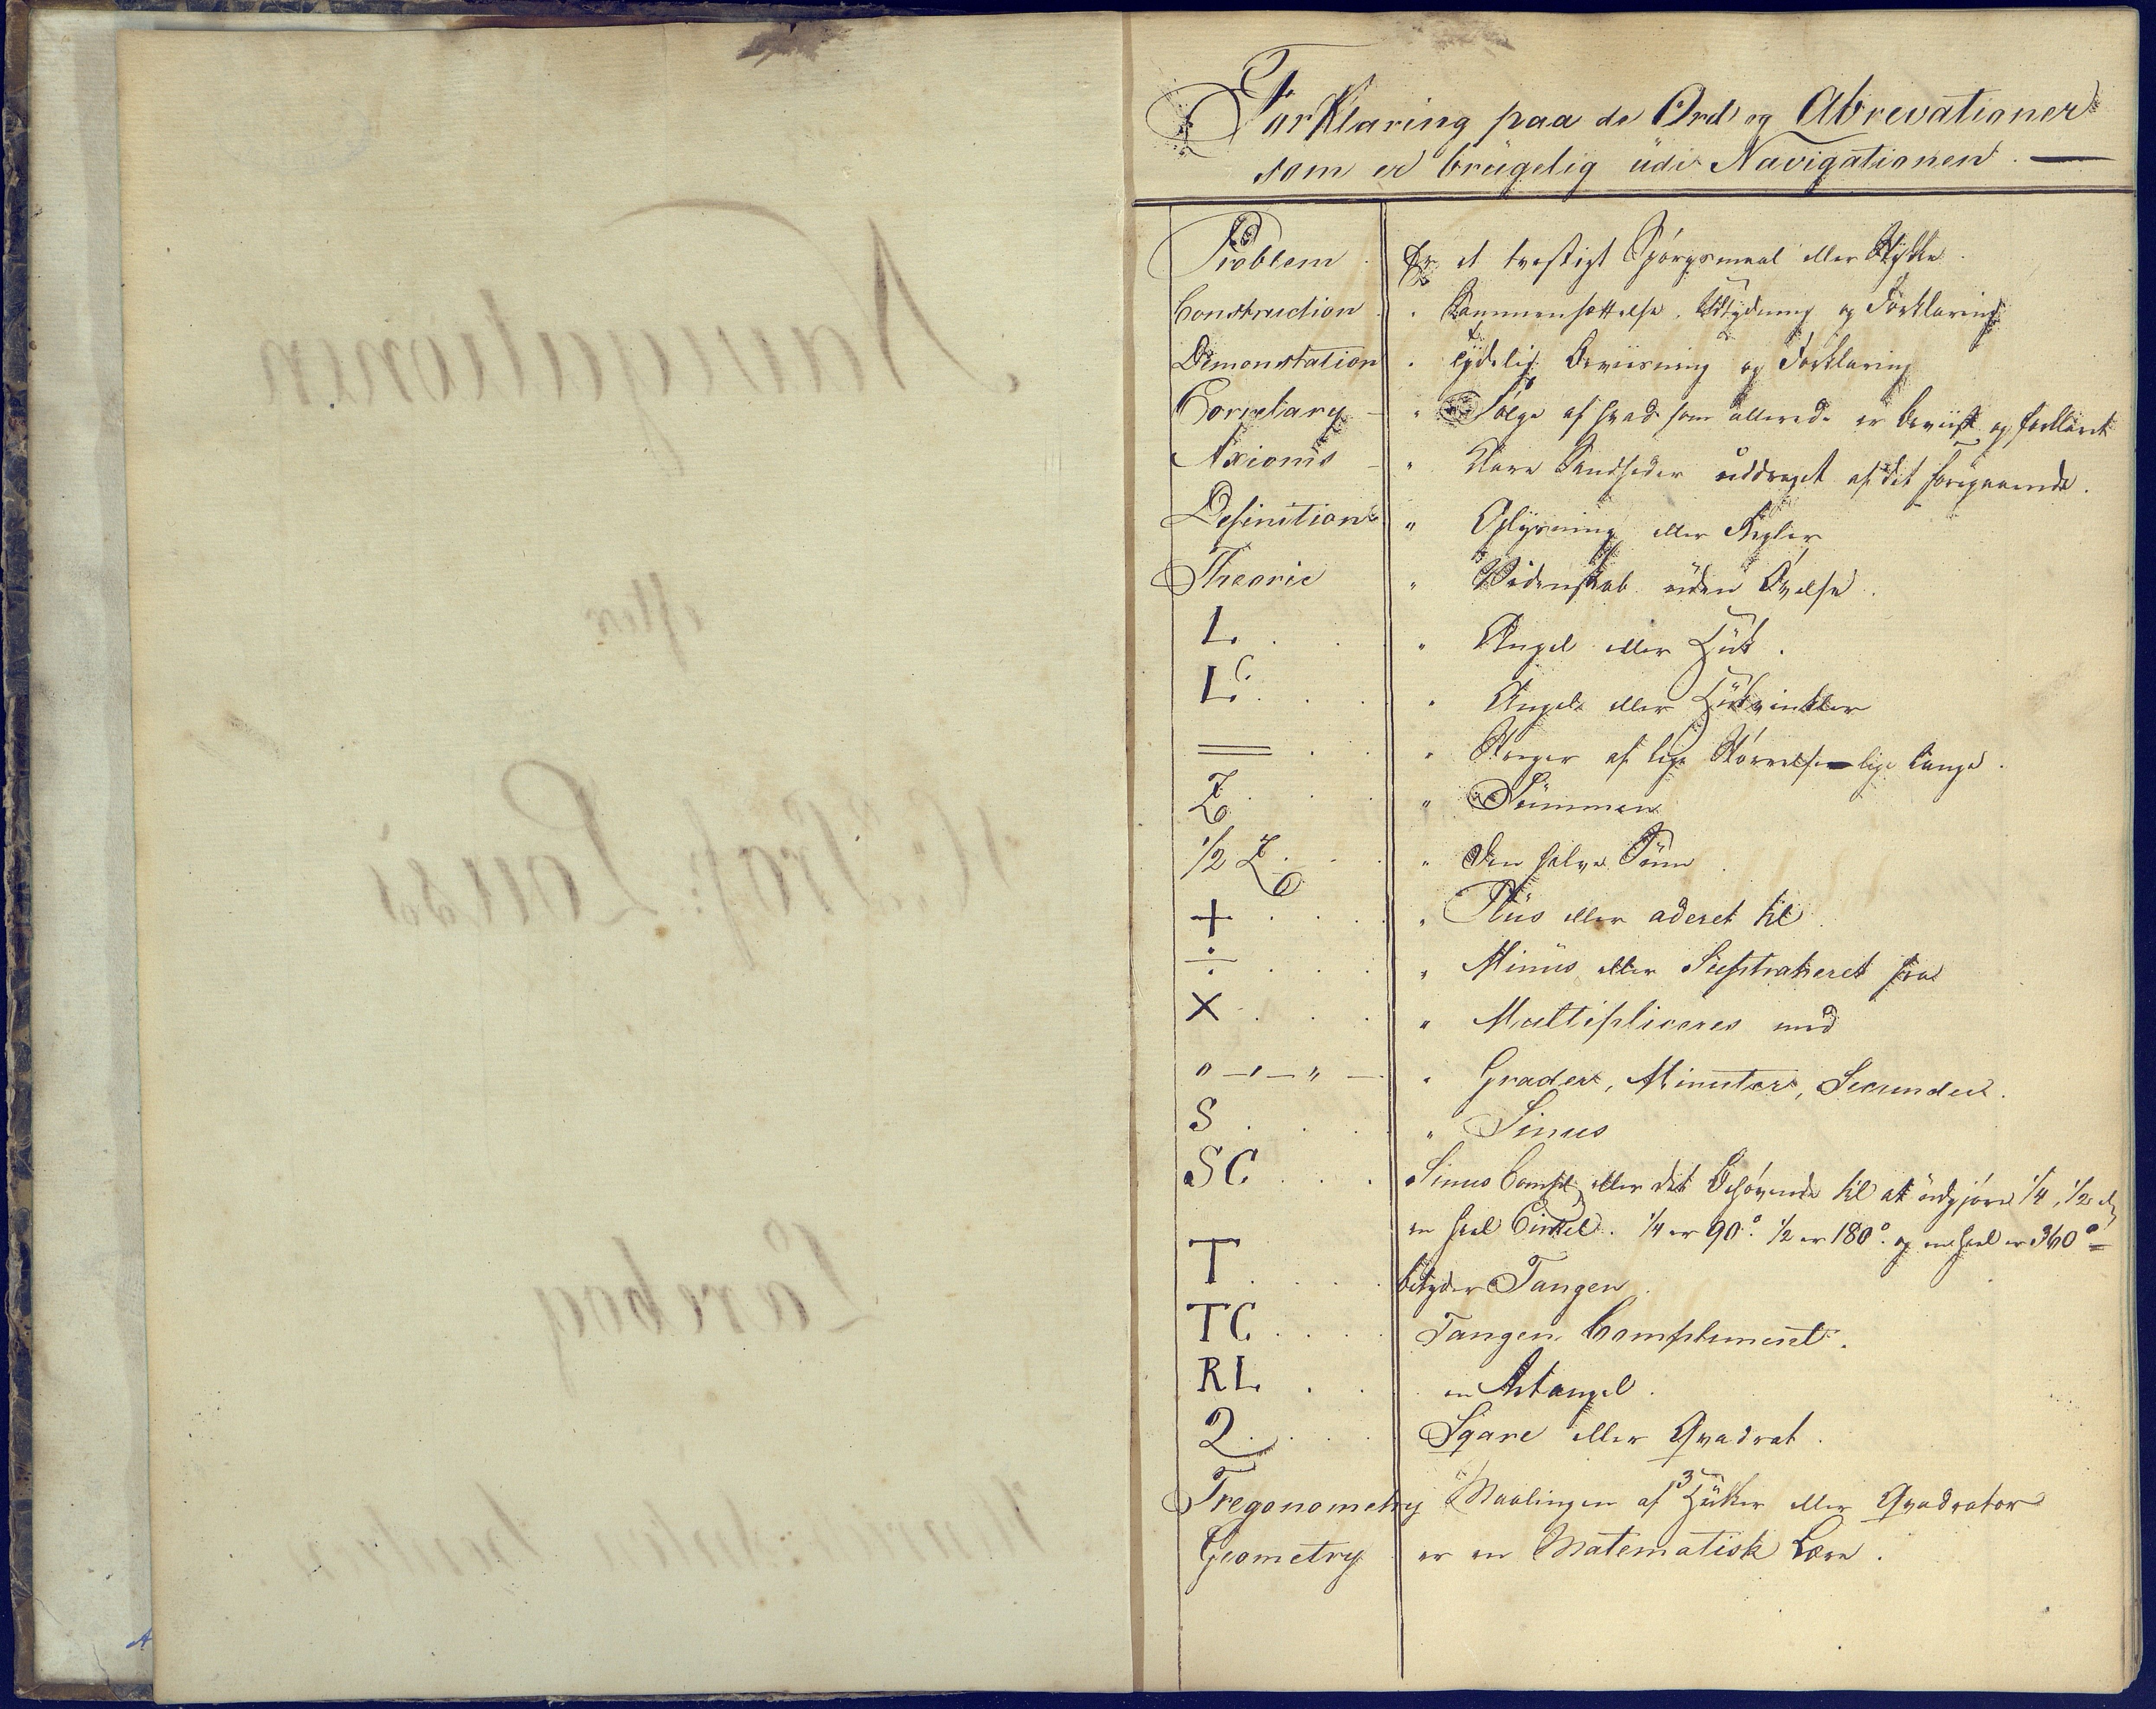 ForKlaring paa de Ord og Abrevationer
som er brügelig üdi Navigationen. —
Problem . Er et tvestigt Spörgsmaal eller Stykke.
Construction . " Sammensættelse, Udtydning og Forklaring
Demonstation " tydelig Beviisning og Forklaring
Corpelary — " Fölge af hvad som allerede er beviist og forklaret
Axioms — " Klare Sandheder uddraget af det foregaaende.
Definition " Oplysning eller Regler
Theorie " Videnskab uden Övelse.
L. . " Angel eller Hük.
L.s . . " Angels eller Hükvinkler
= . . " Streger af lige Störrelse — lige lange.
Z . . . " Summen
1/2 Z . . . " Den halve Süm
+ . . . " Plüs eller aderet til
÷ . . . " Minüs eller Suptraheret fra
X . . . " Multipliceres med
" — ' — " — " Grader, Minuter, Secunder.
S . . . " Sinus
SC . . . Sinus Compl. eller det Behövende til at üdgjöre 1/4, 1/2 el
en heel Cirkel. 1/4 er 90°. 1/2 er 180°. og en heel er 360° =
T . . . . betyder Tangen.
TC . . . . Tangen Compliment.
RL . . . en Retangel.
Q . . . . Sqare eller Qvadrat.
Tregonometry Maalingen af 3 Hüker eller Qvadrater
Geometry er en Matematisk Lære.
Navigationen
efter
Prof: Tousi
Lärebog